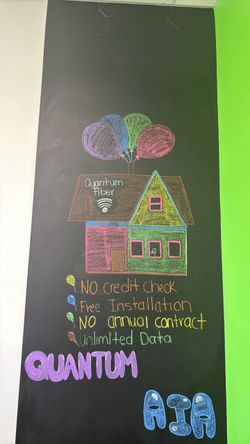 Quantum
Fiber
NO credit check
Free Installation
NO annual contract
Unlimited Data
QUANTUM
AIA